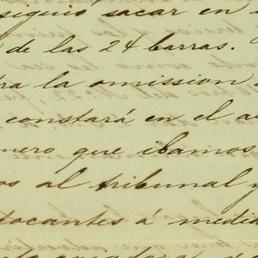 siguio sacar en
de las 24 barras.
ra la omission
constará en el a
mero que ibamos
os al tribunal y
tocantes á medi